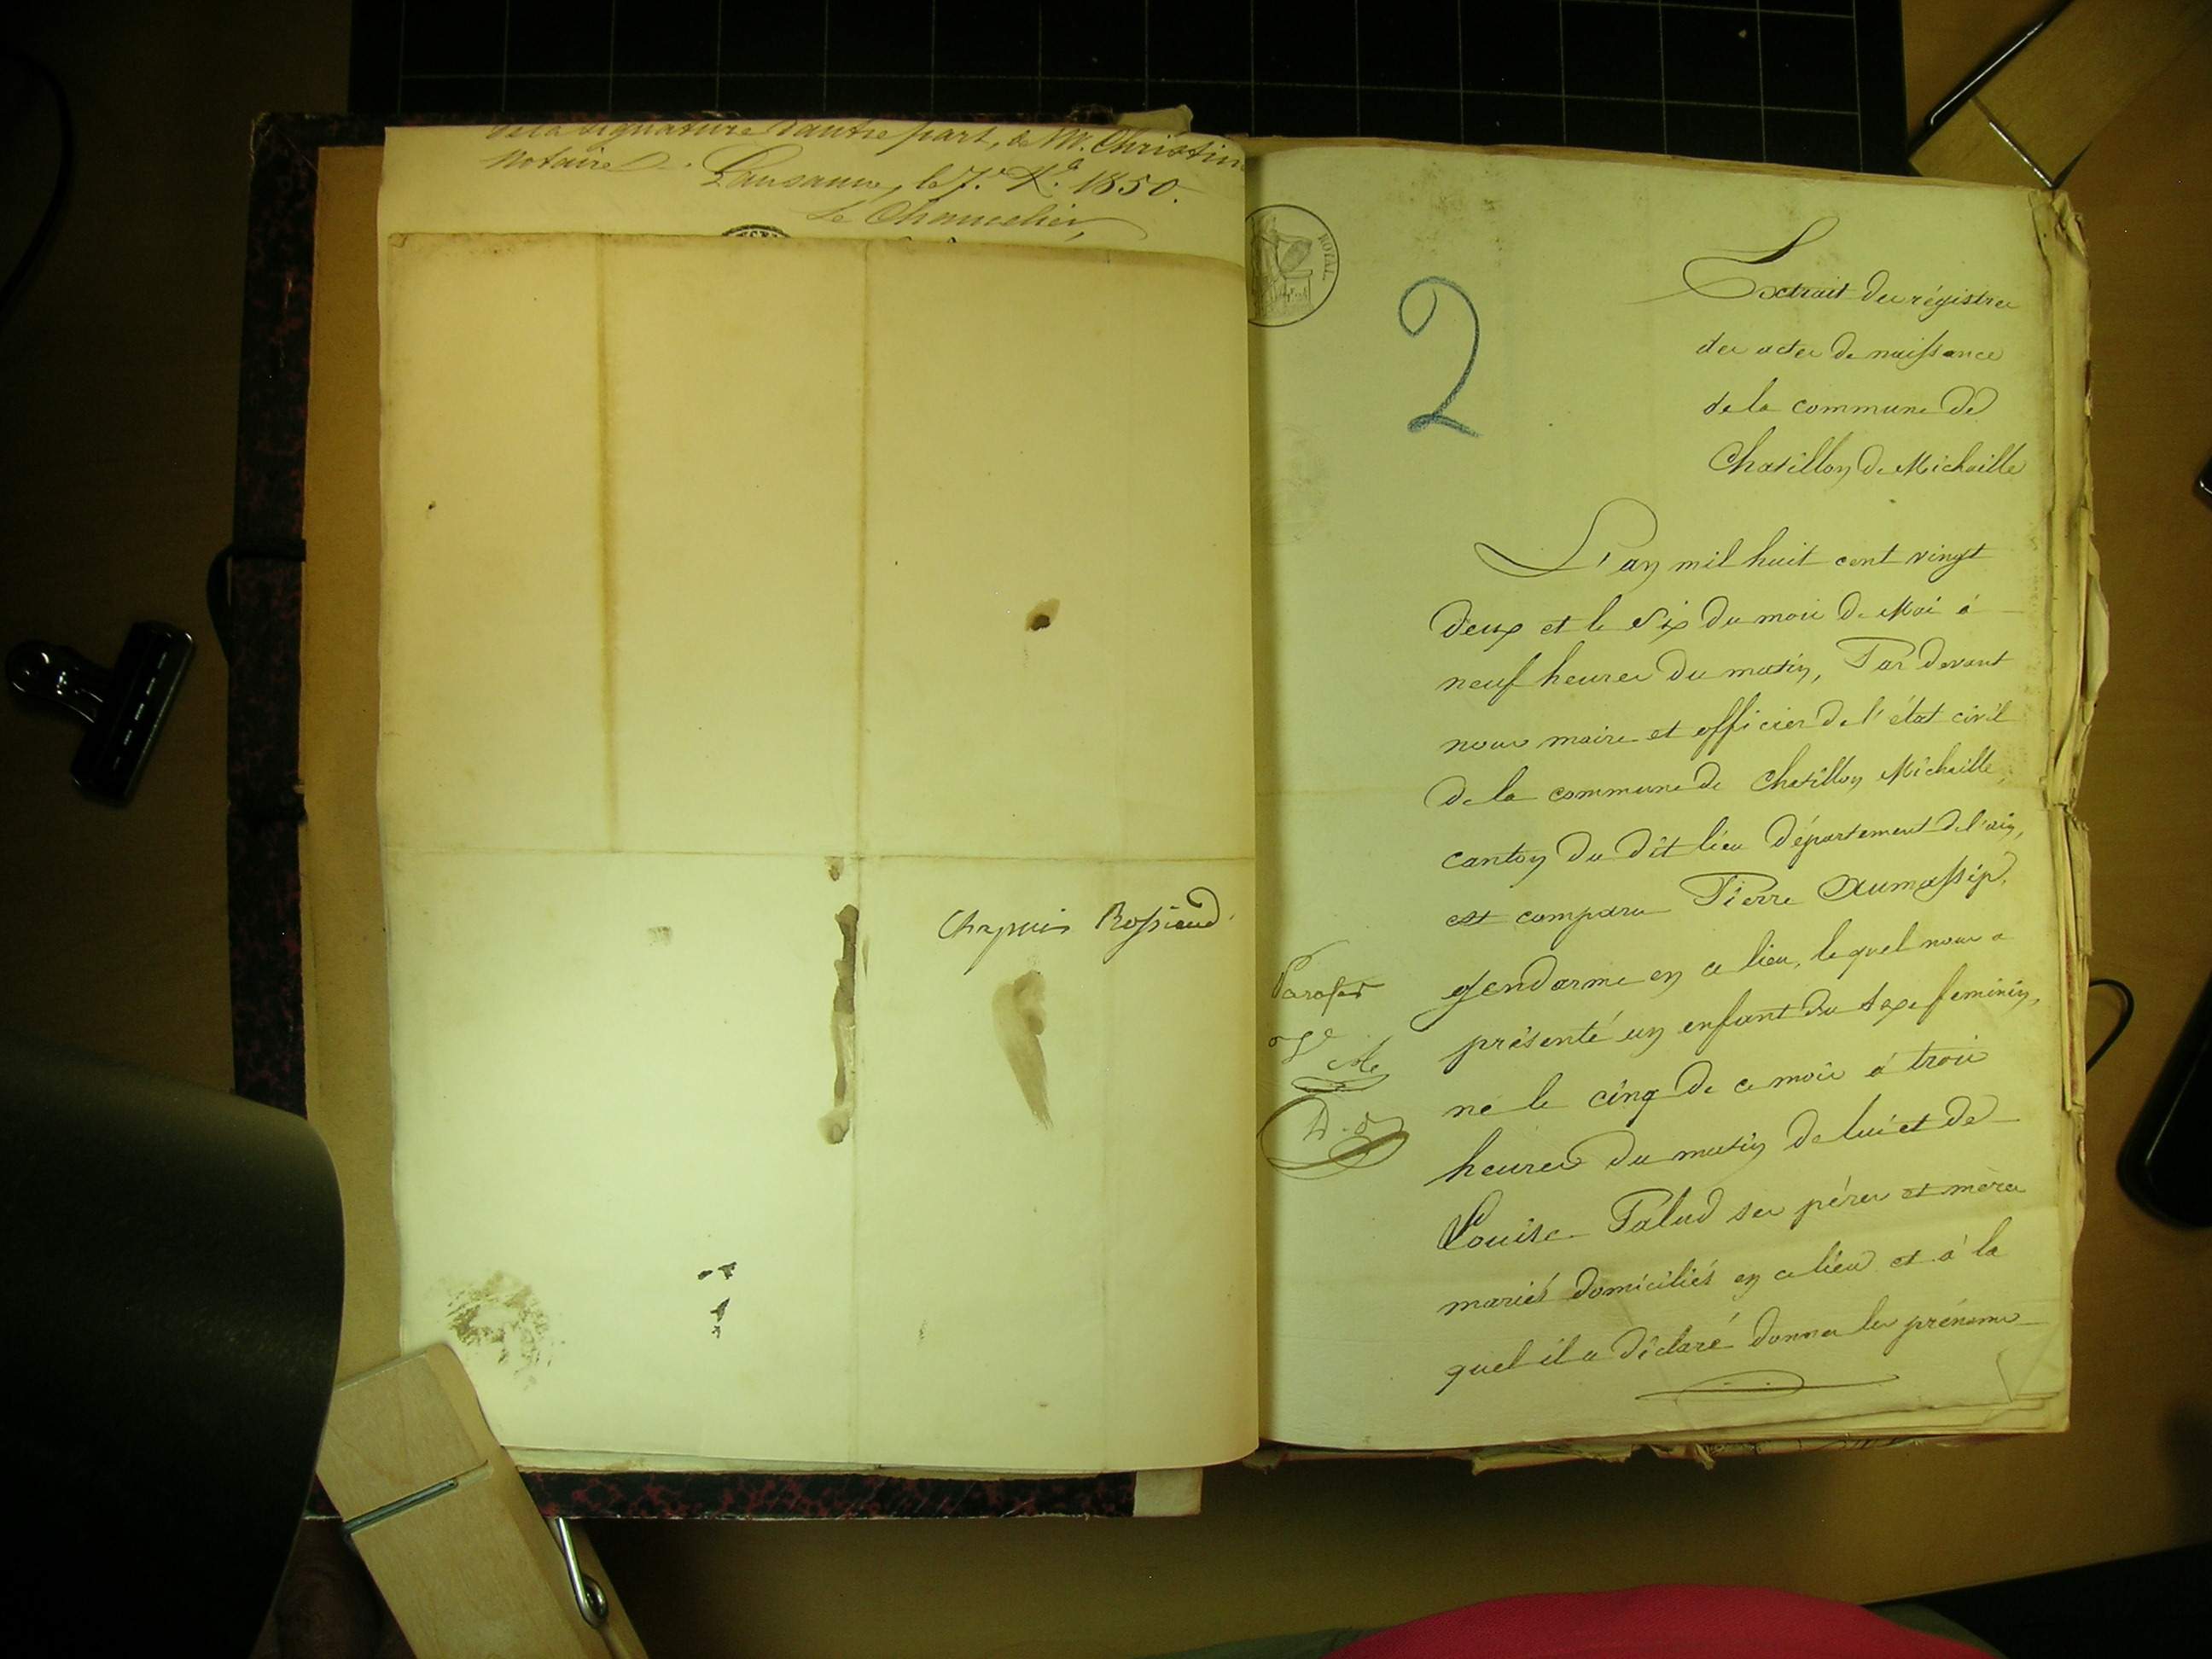 de la signature d'autre part, de Mr. Christin
Notaire. Lausanne, le 7. Xe. 1850.
Le Chancelier,
Chapuis Rossiaud
ROYAL
2
Extrait des régistres
des actes de naissance
de la commune de
Chatillon de Michaille
L'an mil huit cent vingt
deux et le six du mois de Mai à
neuf heures du matin, Par devant
nous maire et officier de l'état civil
de la commune de Chatillon Michaille,
canton du dit lieu département de l'ain,
est comparu Pierre Aumassip,
gendarme en ce lieu, lequel nous a
présenté un enfant du sexe feminin,
né le cinq de ce mois à trois
heures du matin de lui et de
Louise Palud ses pères et mères
mariés domiciliés en ce lieu et à la
quel il a déclaré donner les prénoms
Parafer